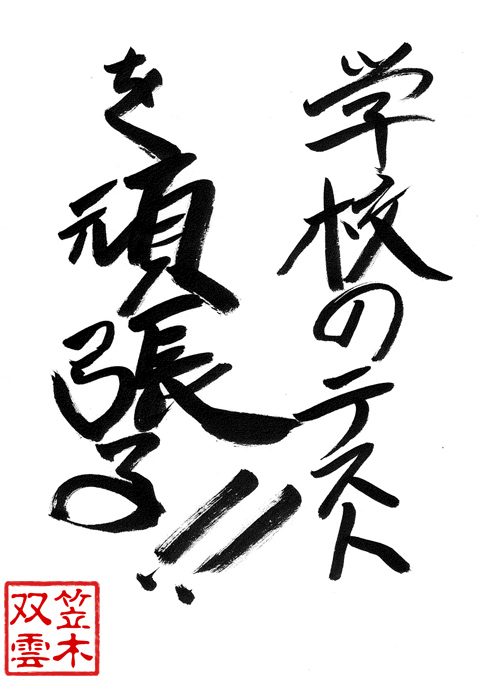 学校のテスト
を頑張る!!
笠木
双雲